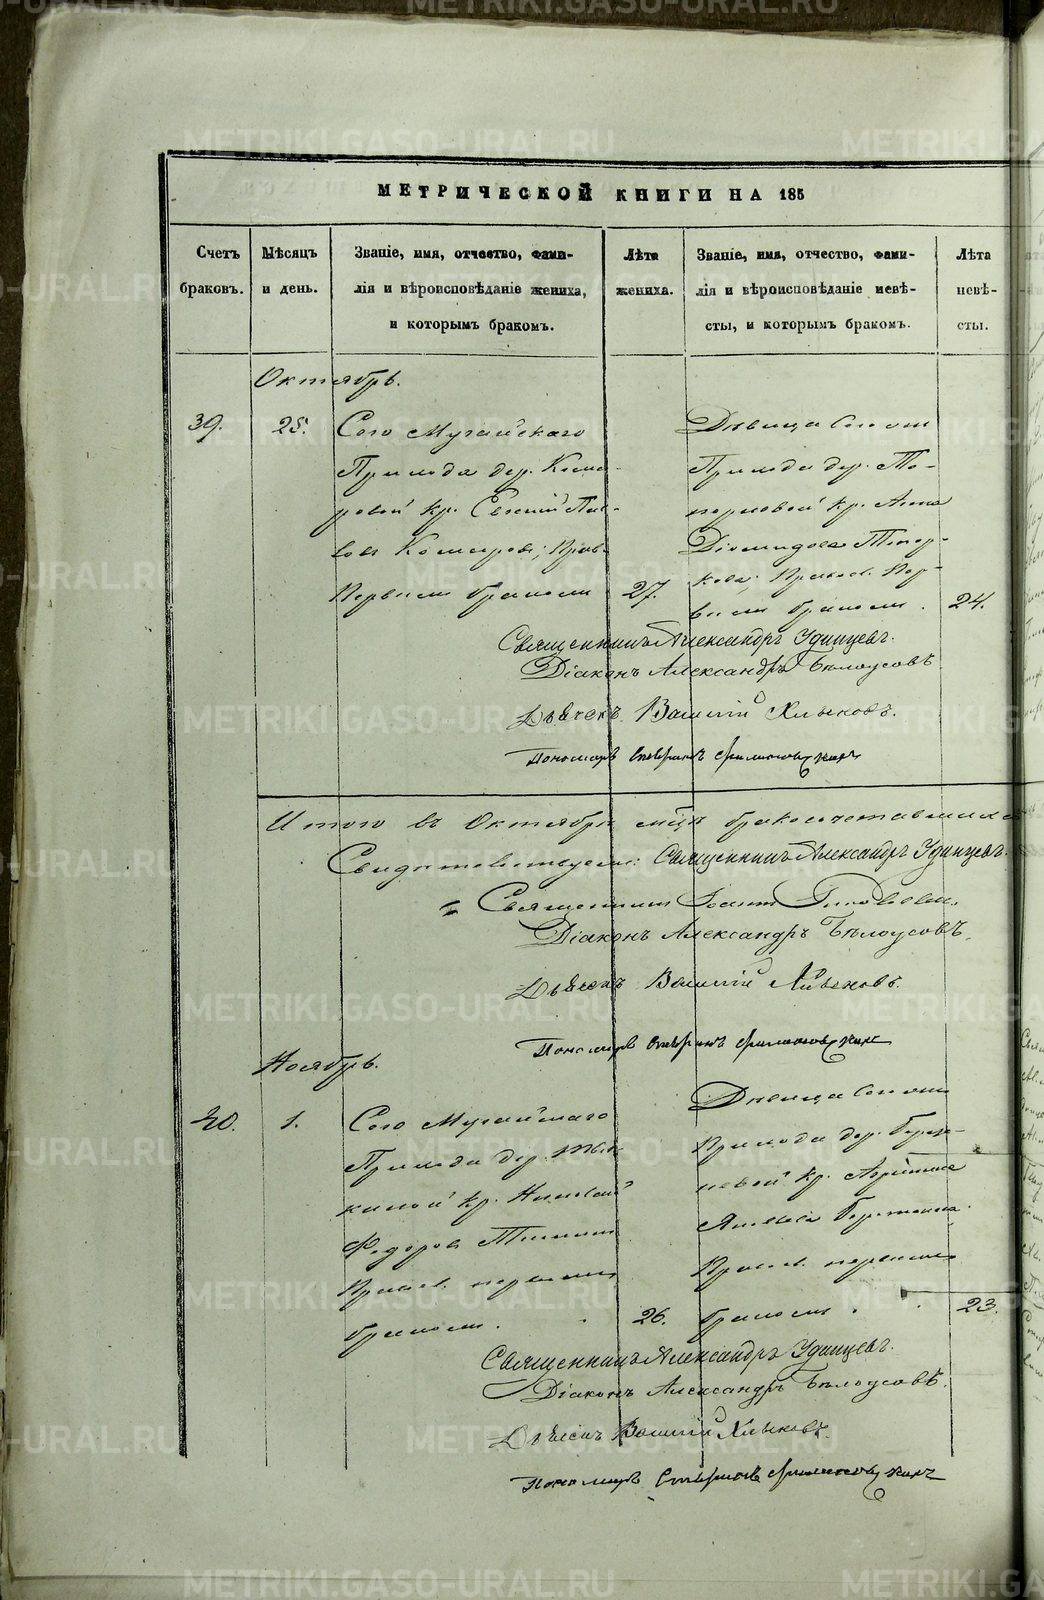 МЕТРИЧЕСКОЙ КНИГИ НА 185
Счетъ браковъ.
Мѣсяцъ и день.
Званіе, имя, отчество, фами-
лія и вѣроисповѣданіе жениха,
и которымъ бракомъ.
Лѣта жениха.
Званіе, имя, отчество, фами-
лія и вѣроисповѣданіе невѣ-
сты, и которымъ бракомъ.
Лѣта невѣ-
сты.
Октябрь.
39.
25.
Сего Мугайскаго
Прихода дер. Кома-
ровой кр. Евгений Пав-
ловъ Комаровъ, Прав.
Первымъ бракомъ
27.
Дѣвица сего же
Прихода дер. То-
порковой кр. Анна
Діомидова Топор-
кова, Правосл. Пер-
вымъ бракомъ.
24.
Священникъ Александръ Удинцевъ.
Діаконъ Александръ Бѣлоусовъ
Дьячекъ Василій
Пономарь
Итого въ Октябрѣ мцѣ бракосочетавшихся
Свидѣтельствуемъ: Священникъ Александръ Удинцевъ.
Священникъ Іоаннъ
Діаконъ Александръ Бѣлоусовъ.
Дьячекъ Василій
Пономарь
Ноябрь.
40.
1.
Сего Мугайскаго
Прихода дер.
киной кр. Николай
Федоровъ
Правосл. первымъ
бракомъ.
26.
Дѣвица сего же
Прихода дер. Береж-
невой кр.
Правосл. первымъ
бракомъ.
23.
Священникъ Александръ Удинцевъ.
Діаконъ Александръ Бѣлоусовъ.
Дьячекъ Василій
Пономарь
METRIKI.GASO-URAL.RU